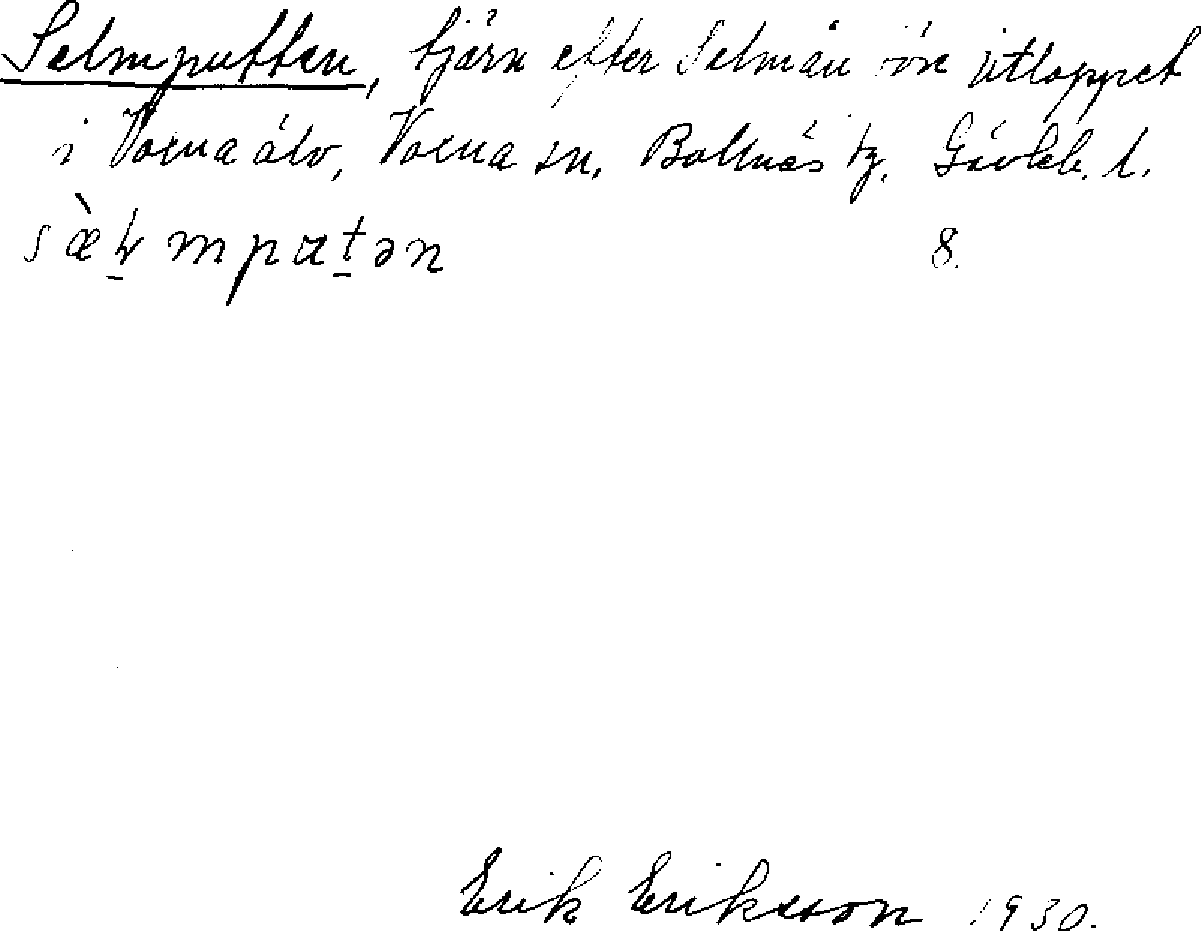 Selmputten, tjärn efter Selmån före utloppet
i Voxna älv, Voxna sn, Bollnäs tg, Gävleb. l.
sæ̀l̠mpat̠ən 8.
Erik Eriksson 1930.